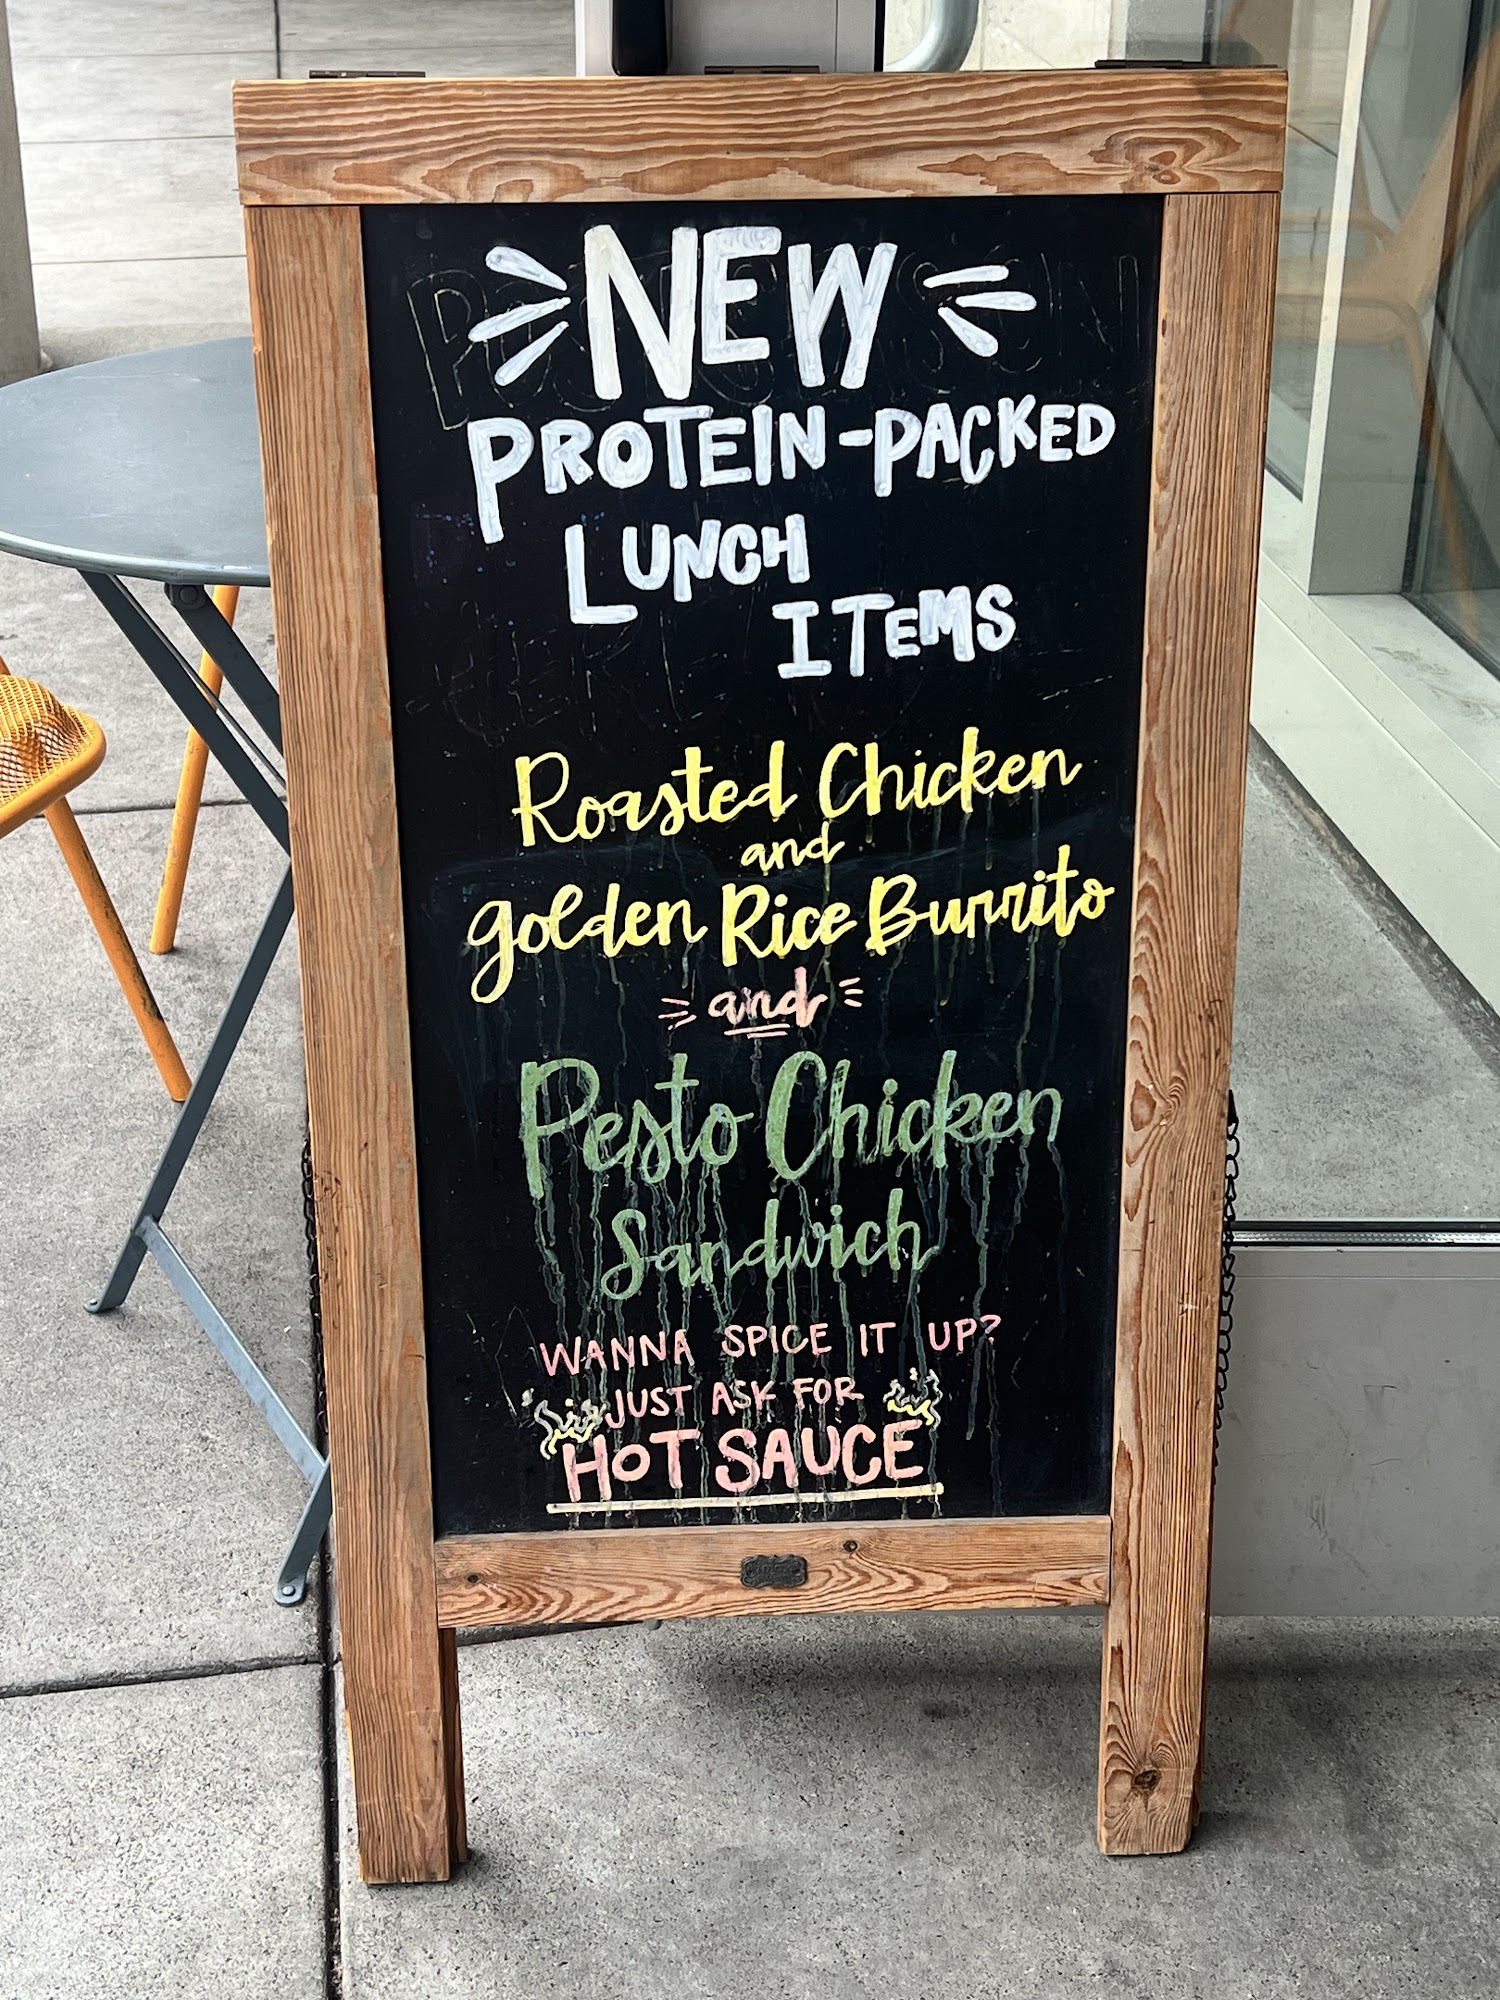 NEW
PROTEIN-PACKED
LUNCH
ITEMS
Roasted Chicken
and
golden Rice Burrito
and
Pesto Chicken
Sandwich
WANNA SPICE IT UP?
JUST ASK FOR
HOT SAUCE